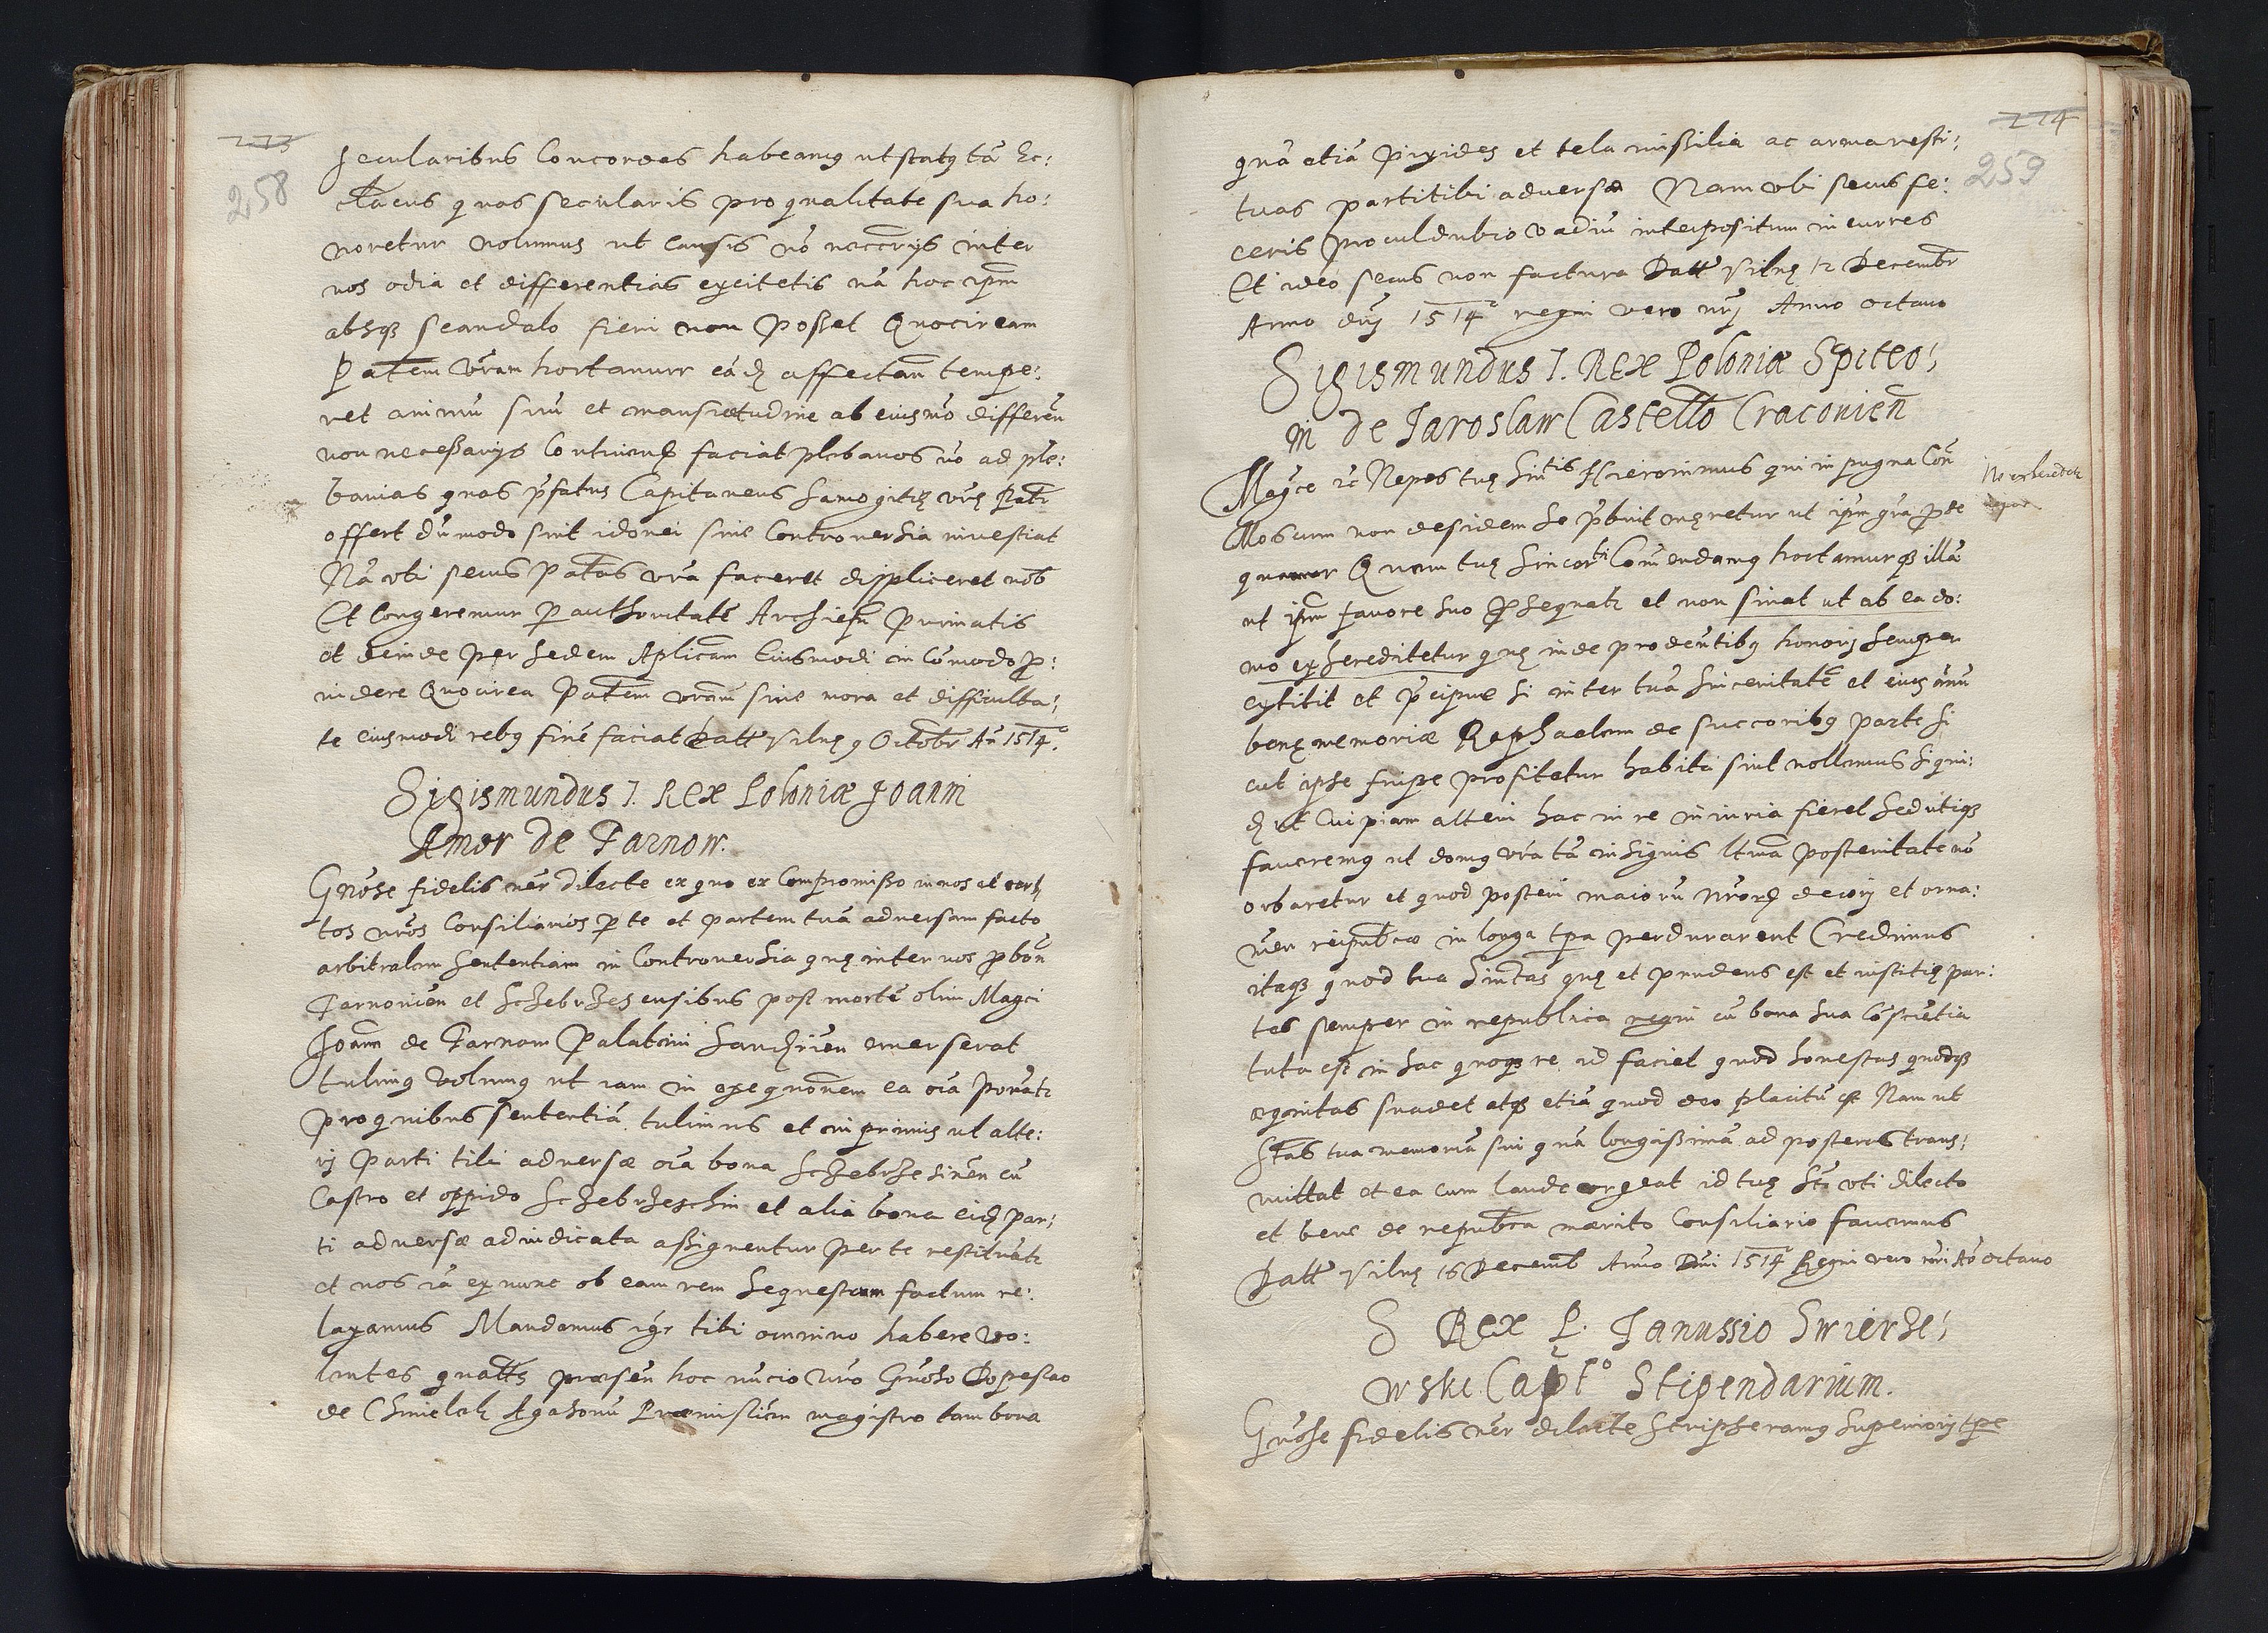 273
258
secularibus Concordes habeamus ut status tā Ec:
cl̄iacus quas secularis pro qualitate sua ho:
noretur nolumus ut Causis nō neccr̄ijs inter
nos odia et differentias excitetis nā hoc ip̄m
absq3 scandalo fieri non posset Quocircam
P atem vr̄am hortamurr eād affectan̄ tempe:
ret animū suū et mansuetudine ab eiusmō differēn
non necessarijs Contineries faciat plebanos vō ad ple:
banias quas p̄fatus Capitaneus Samogitię vrę Pat̄i
offert dūmodo sint idonei sine Controuersia inuestiat
Nā vbi secus Patas vrā faceret displiceret nob̄
Et Cogeremur p authoritatē Archiep̄i Primatis
et deinde per sedem Aplicam Eiusmodi in Cōmodo p:
uidere Quocirca Patem vram̄ sine mora et difficulta:
te eiusmodi rebus finē faciat Datt Vilnę 9 Octobr̄ An̄ 1514.
Sigismundus I. Rex Poloniæ Joanni
Amor de Tarnow.
Gn̄ose fidelis nēr dilecte ex quo ex Compromisso in nos et cert,
tos nr̄os Consiliarios p te et partem tuā aduersam facto
arbitralem sententiam in Controuersia quę inter uos p bon̄
Tarnouien̄ et Sczebrzesensibus post mortē olim Maḡci
Joan̄n de Tarnow Palatini Sandr̄ien emerserat
tulimus volumus ut iam in exequonem ea oīa ponātr
pro quibus sententiā tulimus et in primis ut alte:
ri Parti tibi aduersæ oīa bona Sczebrze sinēn cū
Castro et oppido Sczebrzeschin et alia bona eid par,
ti aduersæ adiudicata assignentur per te restituātr
et nos iā ex nunc ob eam rem sequestrum factum re:
laxamus Mandamus igr̄ tibi omnino habere vo:
lentes quatt3 præsēn hoc nūcio nr̄o Gn̄oso Dopeslao
de Chmielek Agasonū Præmislien̄ magistro tam bona
274
259
quā etiā pixides et tela missilia ac arma resti:
tuas parti tibi aduersæ Nam vbi secus fe:
ceris proculdubio vadiū interpositum incurres
Et ideo secus non factura Datt Vilnę 12 Decembr̄
Anno dnj̄ 1514 regni vero nrj̄ Anno octauo
Sigismundus I. Rex Poloniæ Spiteo,
ni de Jaroslaw Castell̄o Craconien̄
Maḡce ic Nepos tuę Sin̄tis Hieronimus qui in pugna Con̄
Moscum non desidem se p̄buit męretur ut ip̄m grā p̄se
quamur Quem tuę Sincerti Com̄endamus hortamurq3 illā
ut ip̄m fauore suo p̄sequatr et non sinat ut ab ea do:
mo exhereditetur quę inde prodeūtibus honoris semper
extitit et p̄cipue si inter tuā Sinceritatē et eius ānū
benę memoriæ Raphaelem de succoribus parte si
cut ipse fuisse profitetur habiti sint nollemus siqui:
d ut Cuipiam alteri hac in re iniuria fieret sed utiq3
faueremus ut domus vr̄a tā insignis ltma posteritate nō
orbaretur et quod posteri maiorū nr̄orū decori et orna:
mēn reipub̄cæ in longa tpa perdurarent Credimus
itaq3 quod tua Sin̄tas quę et prudens est et iustitię par:
tes semper in republica regni cū bona sua cōsciētia
tuta est in hac quoq3 re id faciet quod honestas quodq3
æquitas suadet atq3 etiā quod deo placitū est Nam ut
Stas tua memoriā sui quā longissimā ad posteros trans,
mittat et ea cum laude vrgeat id tuę Sti vti dilecto
et bene de repub̄ca mærito Consiliario fauemus
Datt Vilnę 16 Decemb̄ Anno Dni 1514 Regni vero nri Aō octauo
S Rex P. Janussio Swierze,
wski. Capto Stipendarium.
Gn̄ose fidelis nēr dilecte Scripseramus superiorj tpe